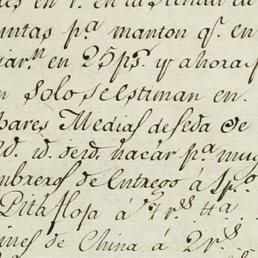 en la tienda de
untas p.ª manton q.e en
en 25 ps. y ahora
solo se estiman en
pares Medias de seda de
id. de id. nacar p.ª mug
mbreros de Entrego á 1 p.º
Pita floja á 7 r.s
ines de China á 2 r.s